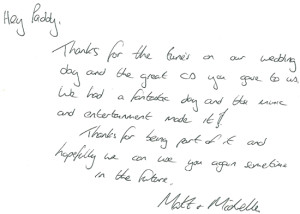 Hey Paddy,
Thanks for the tunes on our wedding
day and the great CD you gave to us.
We had a fantastic day and the music
and entertainment made it!!
Thanks for being part of it and
hopefully we can use you again sometime
in the future,
Matt + Michelle